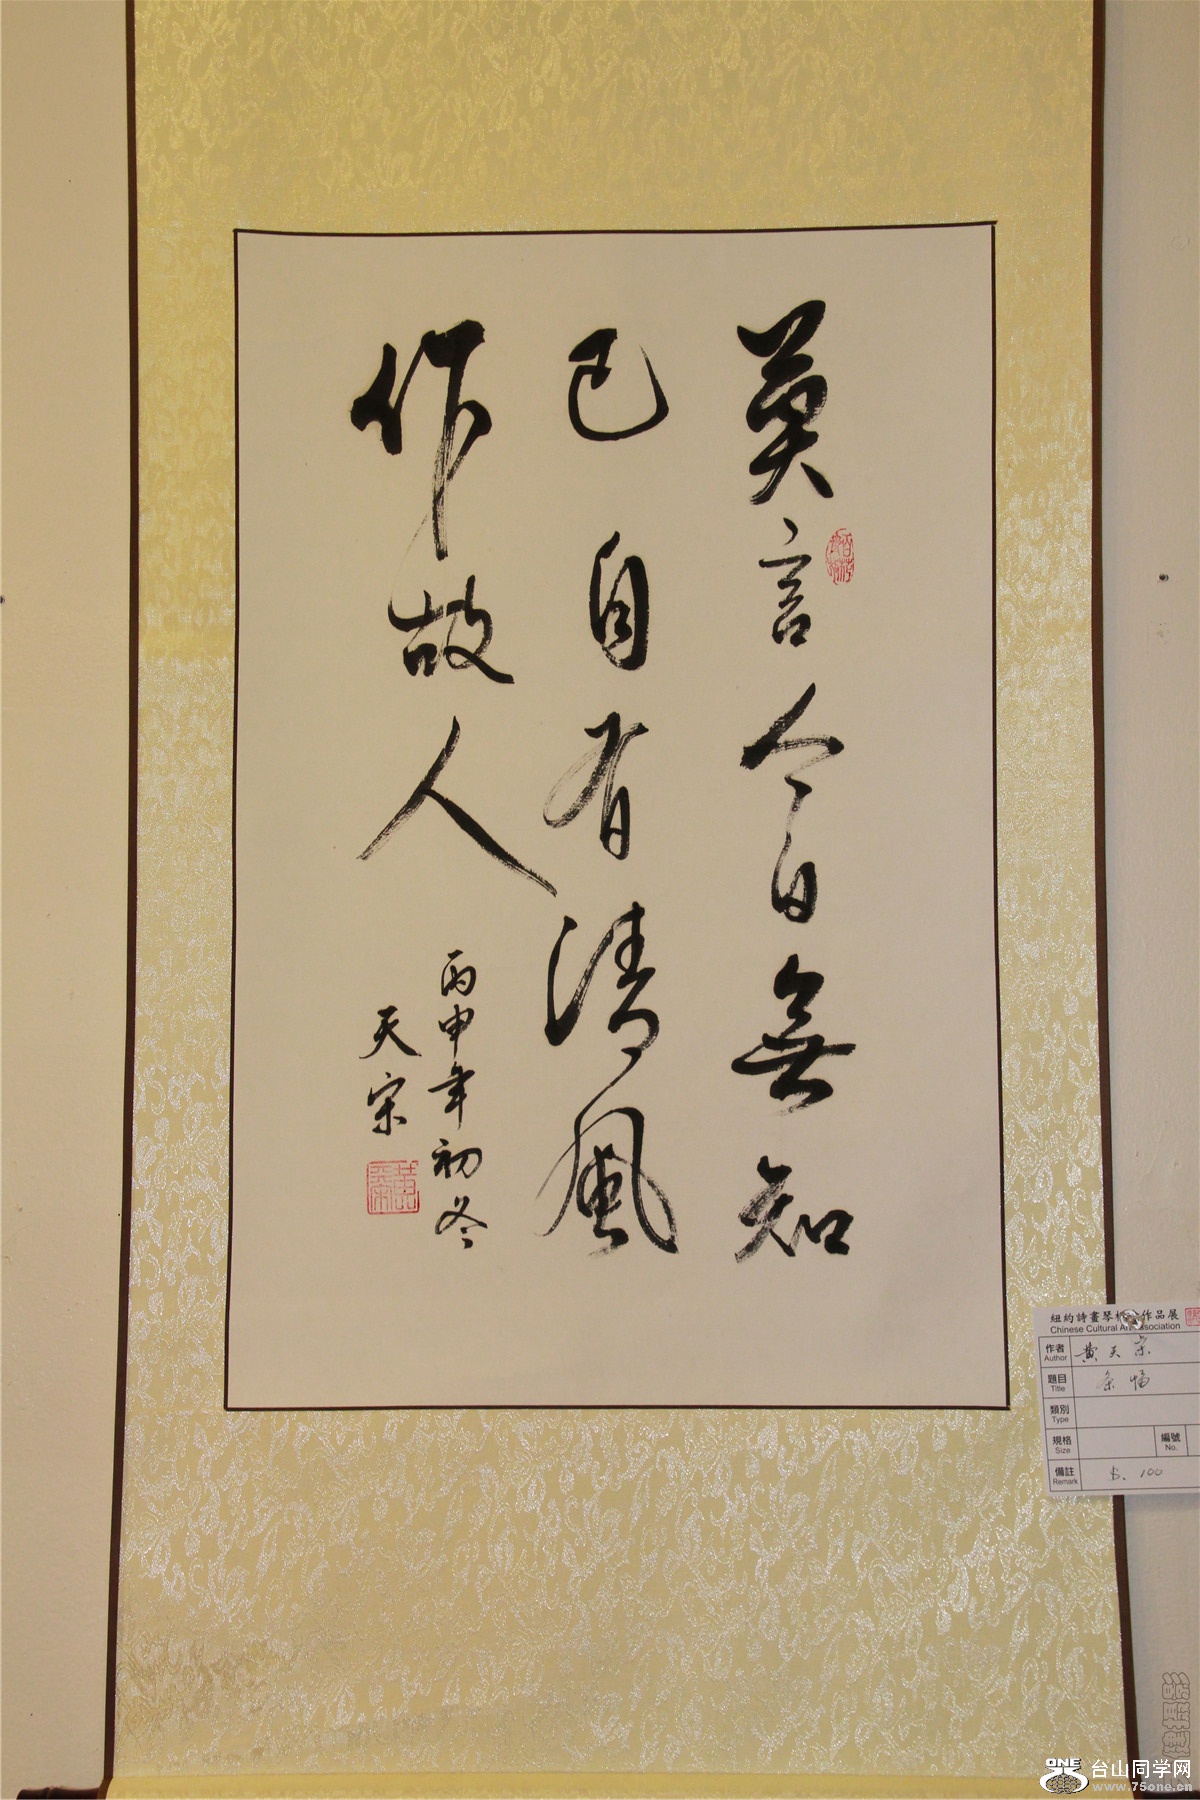 莫言今日無知
己自有清風
作故人
丙申年初冬
天宗
紐約詩畫琴棋會作品展
Chinese Cultural Art Association
作者 Author 黄天宗
題目 Title 条幅
類別 Type
規格 Size
編號 No.
備註 Remark $.100
ONE 台山同学网
www.75one.cn